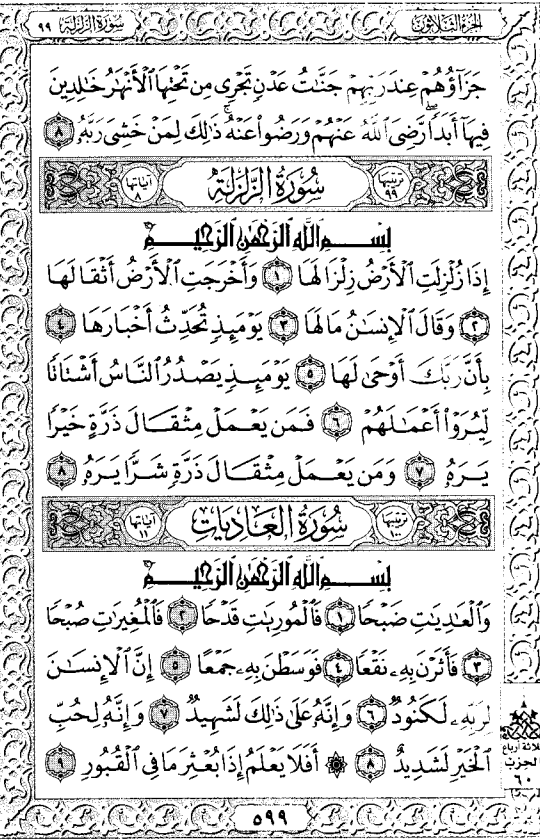 الجزء الثلاثون
سورة الزلزلة ٩٩
جَزَآؤُهُمْ عِندَ رَبِّهِمْ جَنَّٰتُ عَدْنٍ تَجْرِى مِن تَحْتِهَا ٱلْأَنْهَٰرُ خَٰلِدِينَ
فِيهَآ أَبَدًا رَّضِىَ ٱللَّهُ عَنْهُمْ وَرَضُوا۟ عَنْهُ ذَٰلِكَ لِمَنْ خَشِىَ رَبَّهُۥ ٨
ترتيبها ٩٩ سُورَةُ الزَّلْزَلَةِ آياتها ٨
بِسْمِ ٱللَّهِ ٱلرَّحْمَٰنِ ٱلرَّحِيمِ
إِذَا زُلْزِلَتِ ٱلْأَرْضُ زِلْزَالَهَا ١ وَأَخْرَجَتِ ٱلْأَرْضُ أَثْقَالَهَا
٢ وَقَالَ ٱلْإِنسَٰنُ مَا لَهَا ٣ يَوْمَئِذٍ تُحَدِّثُ أَخْبَارَهَا ٤
بِأَنَّ رَبَّكَ أَوْحَىٰ لَهَا ٥ يَوْمَئِذٍ يَصْدُرُ ٱلنَّاسُ أَشْتَاتًا
لِّيُرَوْا۟ أَعْمَٰلَهُمْ ٦ فَمَن يَعْمَلْ مِثْقَالَ ذَرَّةٍ خَيْرًا
يَرَهُۥ ٧ وَمَن يَعْمَلْ مِثْقَالَ ذَرَّةٍ شَرًّا يَرَهُۥ ٨
ترتيبها ١٠٠ سُورَةُ العَادِيَاتِ آياتها ١١
بِسْمِ ٱللَّهِ ٱلرَّحْمَٰنِ ٱلرَّحِيمِ
وَٱلْعَٰدِيَٰتِ ضَبْحًا ١ فَٱلْمُورِيَٰتِ قَدْحًا ٢ فَٱلْمُغِيرَٰتِ صُبْحًا
٣ فَأَثَرْنَ بِهِۦ نَقْعًا ٤ فَوَسَطْنَ بِهِۦ جَمْعًا ٥ إِنَّ ٱلْإِنسَٰنَ
لِرَبِّهِۦ لَكَنُودٌ ٦ وَإِنَّهُۥ عَلَىٰ ذَٰلِكَ لَشَهِيدٌ ٧ وَإِنَّهُۥ لِحُبِّ
ٱلْخَيْرِ لَشَدِيدٌ ٨ ۞ أَفَلَا يَعْلَمُ إِذَا بُعْثِرَ مَا فِى ٱلْقُبُورِ ٩
ثلاثة أرباع
الحزب
٦٠
٥٩٩